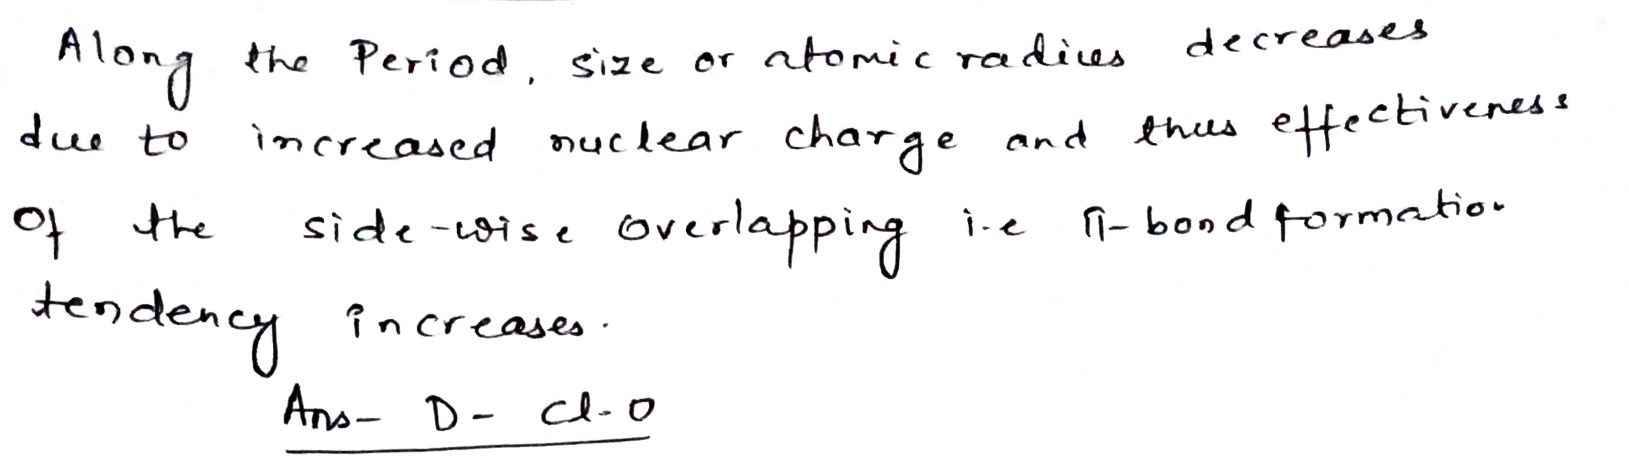 Along the Period, size or atomic radius decreases
due to increased nuclear charge and thus effectiveness
Of the side-wise overlapping i.e π-bond formation
tendency increases.
Ans- D- Cl-O